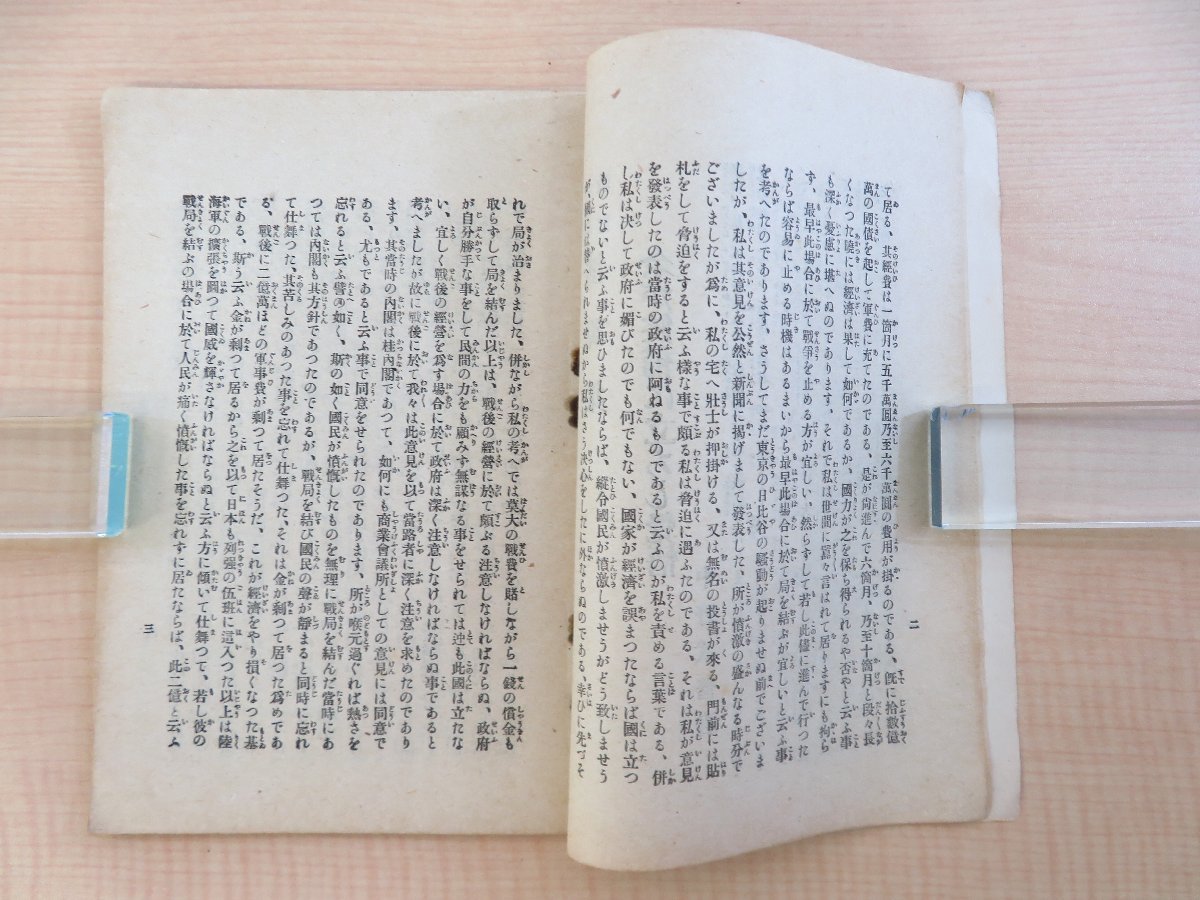 て居る、其經費は一箇月に五千萬圓乃至六千萬圓の費用が掛るのである、既に拾數億
萬の國債を起して軍費に充てたのである、是が尚進んで六箇月、乃至十箇月と段々長
くなつた曉には經濟は果して如何であるか、國力が之を保ち得られるや否やと云ふ事
も深く憂慮に堪へぬのであります、それで私は世間に囂々言はれて居りますにも拘ら
ず、最早此場合に於て戰爭を止める方が宜しい、然らずして若し此儘に進んで行つた
ならば容易に止める時機はあるまいから最早此場合に於て局を結ぶが宜しいと云ふ事
を考へたのであります、さうしてまだ東京の日比谷の騷動が起りませぬ前でございま
したが、私は其意見を公然と新聞に揭げまして發表した、所が憤激の盛んなる時分で
ございましたが爲に、私の宅へ壯士が押掛ける、又は無名の投書が來る、門前には貼
札をして脅迫をすると云ふ樣な事で頗る私は脅迫に遇ふたのである、それは私が意見
を發表したのは當時の政府に阿ねるものであると云ふのが私を責める言葉である、併
し私は決して政府に媚びたのでも何でもない、國家が經濟を誤まつたならば國は立つ
ものでないと云ふ事を思ひましたならば、縱令國民が憤激しませうがどう致しませう
が、られませぬから私はさう決心をしたに外ならぬのである、幸ひに先づそ
二
れで局が治まりました、併ながら私の考へでは莫大の戰費を賭しながら一錢の償金も
取らずして局を結んだ以上は、戰後の經營に於て頗ぶる注意しなければならぬ、政府
が自分勝手な事をして民間の力をも顧みず無謀なる事をせられては迚も此國は立たな
い、宜しく戰後の經營を爲す場合に於て政府は深く注意しなければならぬ事であると
考へましたが故に戰後に於て我々は此意見を以て當路者に深く注意を求めたのであり
ます、其當時の內閣は桂內閣であつて、如何にも商業會議所としての意見には同意で
ある、尤もであると云ふ事で同意をせられたのであります、所が喉元過ぐれば熱さを
忘れると云ふ譬の如く、斯の如く國民が憤慨したものを無理に戰局を結んだ當時にあ
つては內閣も其方針であつたのであるが、戰局を結び國民の聲が靜まると同時に忘れ
て仕舞つた、其苦しみのあつた事を忘れて仕舞つた、それは金が剩つて居つた爲めであ
る、戰後に二億萬ほどの軍事費が剩つて居たそうだ、これが經濟をやり損くなつた基
である、斯う云ふ金が剩つて居るから之を以て日本も列强の伍班に這入つた以上は陸
海軍の擴張を圖つて國威を輝さなければならぬと云ふ方に傾いて仕舞つて、若し彼の
戰局を結ぶの場合に於て人民が痛く憤慨した事を忘れずに居たならば、此二億と云ふ
三